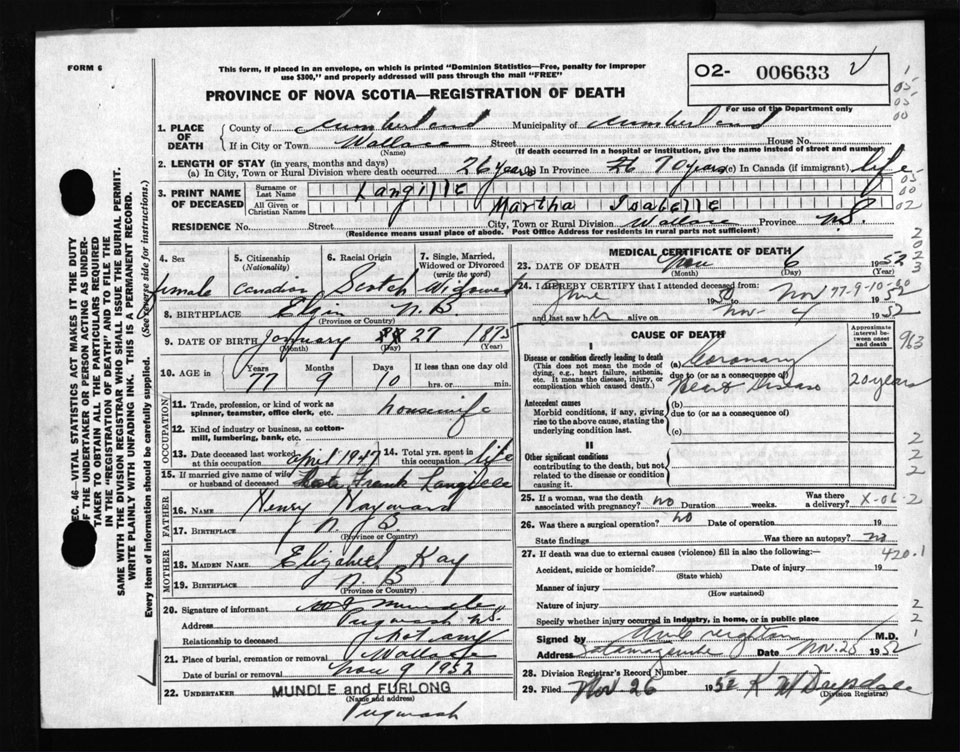 FORM 6
This form, if placed in an envelope, on which is printed "Dominion Statistics—Free, penalty for improper
use $300," and properly addressed will pass through the mail "FREE"
O2- 006633
For use of the Department only
PROVINCE OF NOVA SCOTIA—REGISTRATION OF DEATH
1. PLACE OF DEATH
County of Cumberland Municipality of Cumberland
If in City or Town Wallace Street House No.
(Name) (If death occurred in a hospital or institution, give the name instead of street and number)
2. LENGTH OF STAY (in years, months and days)
(a) In City, Town or Rural Division where death occurred 26 years In Province 70 years (c) In Canada (if immigrant) life
3. PRINT NAME OF DECEASED
Surname or Last Name Langille
All Given or Christian Names Martha Isabelle
RESIDENCE No. Street City, Town or Rural Division Wallace Province N.S.
(Residence means usual place of abode. Post Office Address for residents in rural parts not sufficient)
4. Sex 5. Citizenship (Nationality) 6. Racial Origin 7. Single, Married, Widowed or Divorced (write the word)
Female Canadian Scotch Widowed
8. BIRTHPLACE Elgin N.B
(Province or Country)
9. DATE OF BIRTH January 27 1875
(Month) (Day) (Year)
10. AGE Years Months Days If less than one day old
77 9 10 hrs. or min.
OCCUPATION
11. Trade, profession, or kind of work as spinner, teamster, office clerk, etc. housewife
12. Kind of industry or business, as cotton-mill, lumbering, bank, etc.
13. Date deceased last worked at this occupation April 1947 14. Total yrs. spent in this occupation life
15. If married give name of wife or husband of deceased Late Frank Langille
FATHER
16. NAME Henry Hayward
17. BIRTHPLACE N.B.
(Province or Country)
MOTHER
18. MAIDEN NAME Elizabeth Kay
19. BIRTHPLACE N.B
(Province or Country)
20. Signature of informant Mundle
Address Pugwash N.S.
Relationship to deceased not any
21. Place of burial, cremation or removal Wallace
Date of burial or removal Nov 9 1952
22. UNDERTAKER MUNDLE and FURLONG
(Name and address)
Pugwash
MEDICAL CERTIFICATE OF DEATH
23. DATE OF DEATH Nov 6 1952
(Month) (Day) (Year)
24. I HEREBY CERTIFY that I attended deceased from:
June 19 Nov 1952
77-9-10-30
and last saw her alive on Nov. 4 1952
CAUSE OF DEATH
Approximate interval between onset and death
I
Disease or condition directly leading to death
(This does not mean the mode of dying, e.g., heart failure, asthenia, etc. It means the disease, injury, or complication which caused death.)
(a) Coronary
due to (or as a consequence of)
Heart Disease 20 years
Antecedent causes
Morbid conditions, if any, giving rise to the above cause, stating the underlying condition last.
(b)
due to (or as a consequence of)
(c)
II
Other significant conditions
contributing to the death, but not related to the disease or condition causing it.
25. If a woman, was the death associated with pregnancy? no Duration weeks. Was there a delivery? X-06-2
26. Was there a surgical operation? no Date of operation 19
State findings Was there an autopsy? no
27. If death was due to external causes (violence) fill in also the following:—
420.1
Accident, suicide or homicide? Date of injury 19
(State which)
Manner of injury
(How sustained)
Nature of injury
Specify whether injury occurred in industry, in home, or in public place
Signed by Creighton M.D.
Address Tatamagouche Date Nov. 25 1952
28. Division Registrar's Record Number
29. Filed Nov. 26 1952
(Division Registrar)
SEC. 46—VITAL STATISTICS ACT MAKES IT THE DUTY
OF THE UNDERTAKER OR PERSON ACTING AS UNDERTAKER
TO OBTAIN ALL THE PARTICULARS REQUIRED
IN THE "REGISTRATION OF DEATH" AND TO FILE THE
SAME WITH THE DIVISION REGISTRAR WHO SHALL ISSUE THE BURIAL PERMIT.
WRITE PLAINLY WITH UNFADING INK. THIS IS A PERMANENT RECORD.
Every item of information should be carefully supplied. (See reverse side for instructions.)